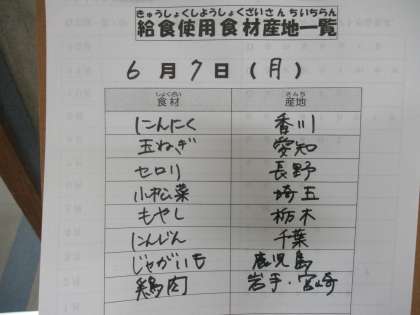 きゅうしょくしようしょくざいさんちいちらん
給食使用食材産地一覧
6月7日(月)
しょくざい さんち
食材 産地
にんにく 香川
玉ねぎ 愛知
セロリ 長野
小松菜 埼玉
もやし 栃木
にんじん 千葉
じゃがいも 鹿児島
鶏肉 岩手・宮崎